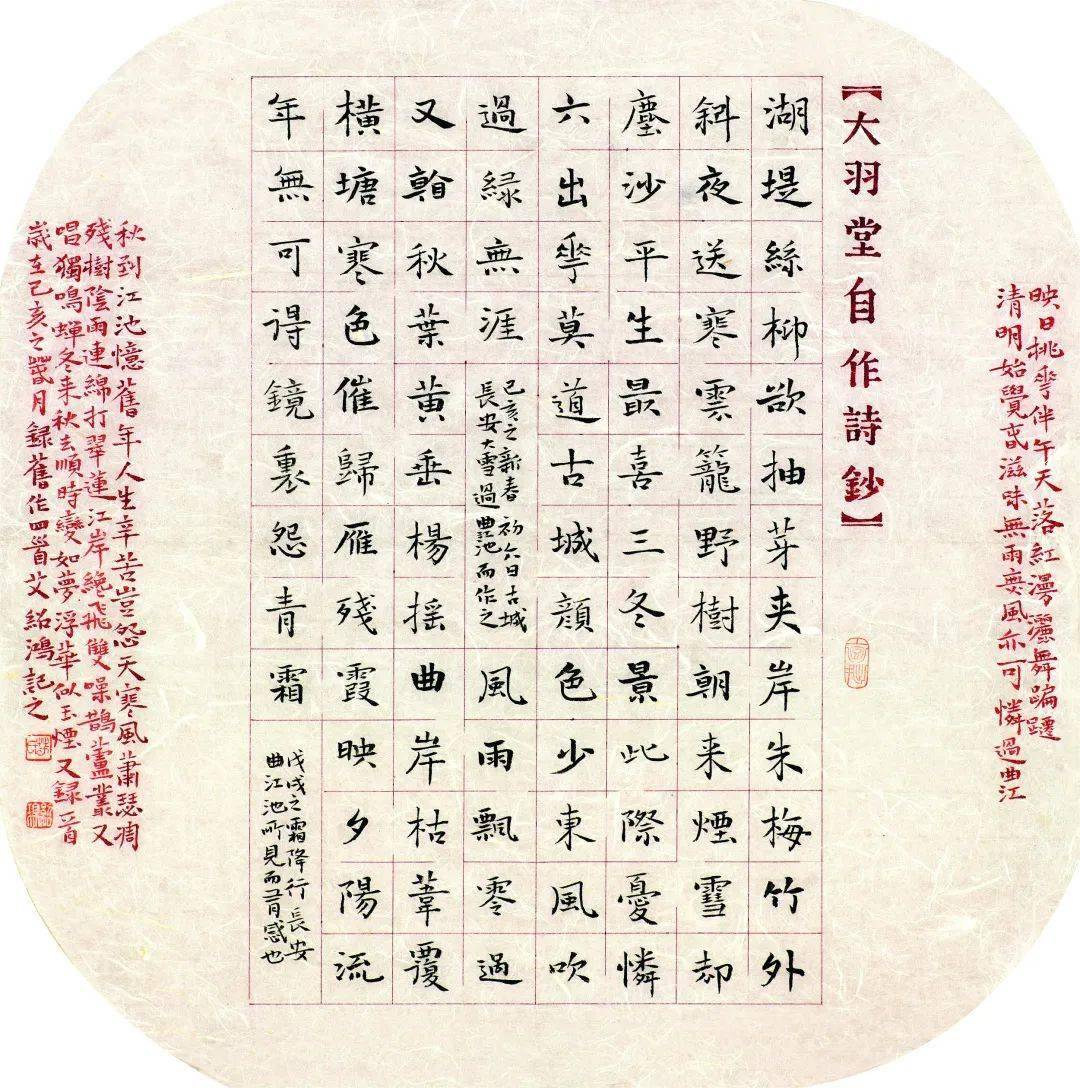 映日桃華伴午天落紅漫灑舞蹁躚
清明始覺春滋味無雨無風亦可憐過曲江
【大羽堂自作詩鈔】
湖堤絲柳欲抽芽夾岸朱梅竹外
斜夜送寒雲籠野樹朝来煙雪却
塵沙平生最喜三冬景此際憂憐
六出華莫道古城顏色少東風吹
過緑無涯
己亥之新春初六日古城
長安大雪過曲池而作之
風雨飄零過
又翰秋葉黄垂楊摇曲岸枯葦覆
橫塘寒色催歸雁殘霞映夕陽流
年無可得鏡裏怨青霜
戊戌之霜降行長安
曲江池所見而有感也
秋到江池憶舊年人生辛苦豈怨天寒風蕭瑟凋
殘樹陰雨連綿打翠蓮江岸絶飛雙噪鵲蘆叢又
唱獨鳴蟬冬来秋去順時變如夢浮華似玉煙又録一首
歲在己亥之蠶月録舊作四首艾紹鴻記之